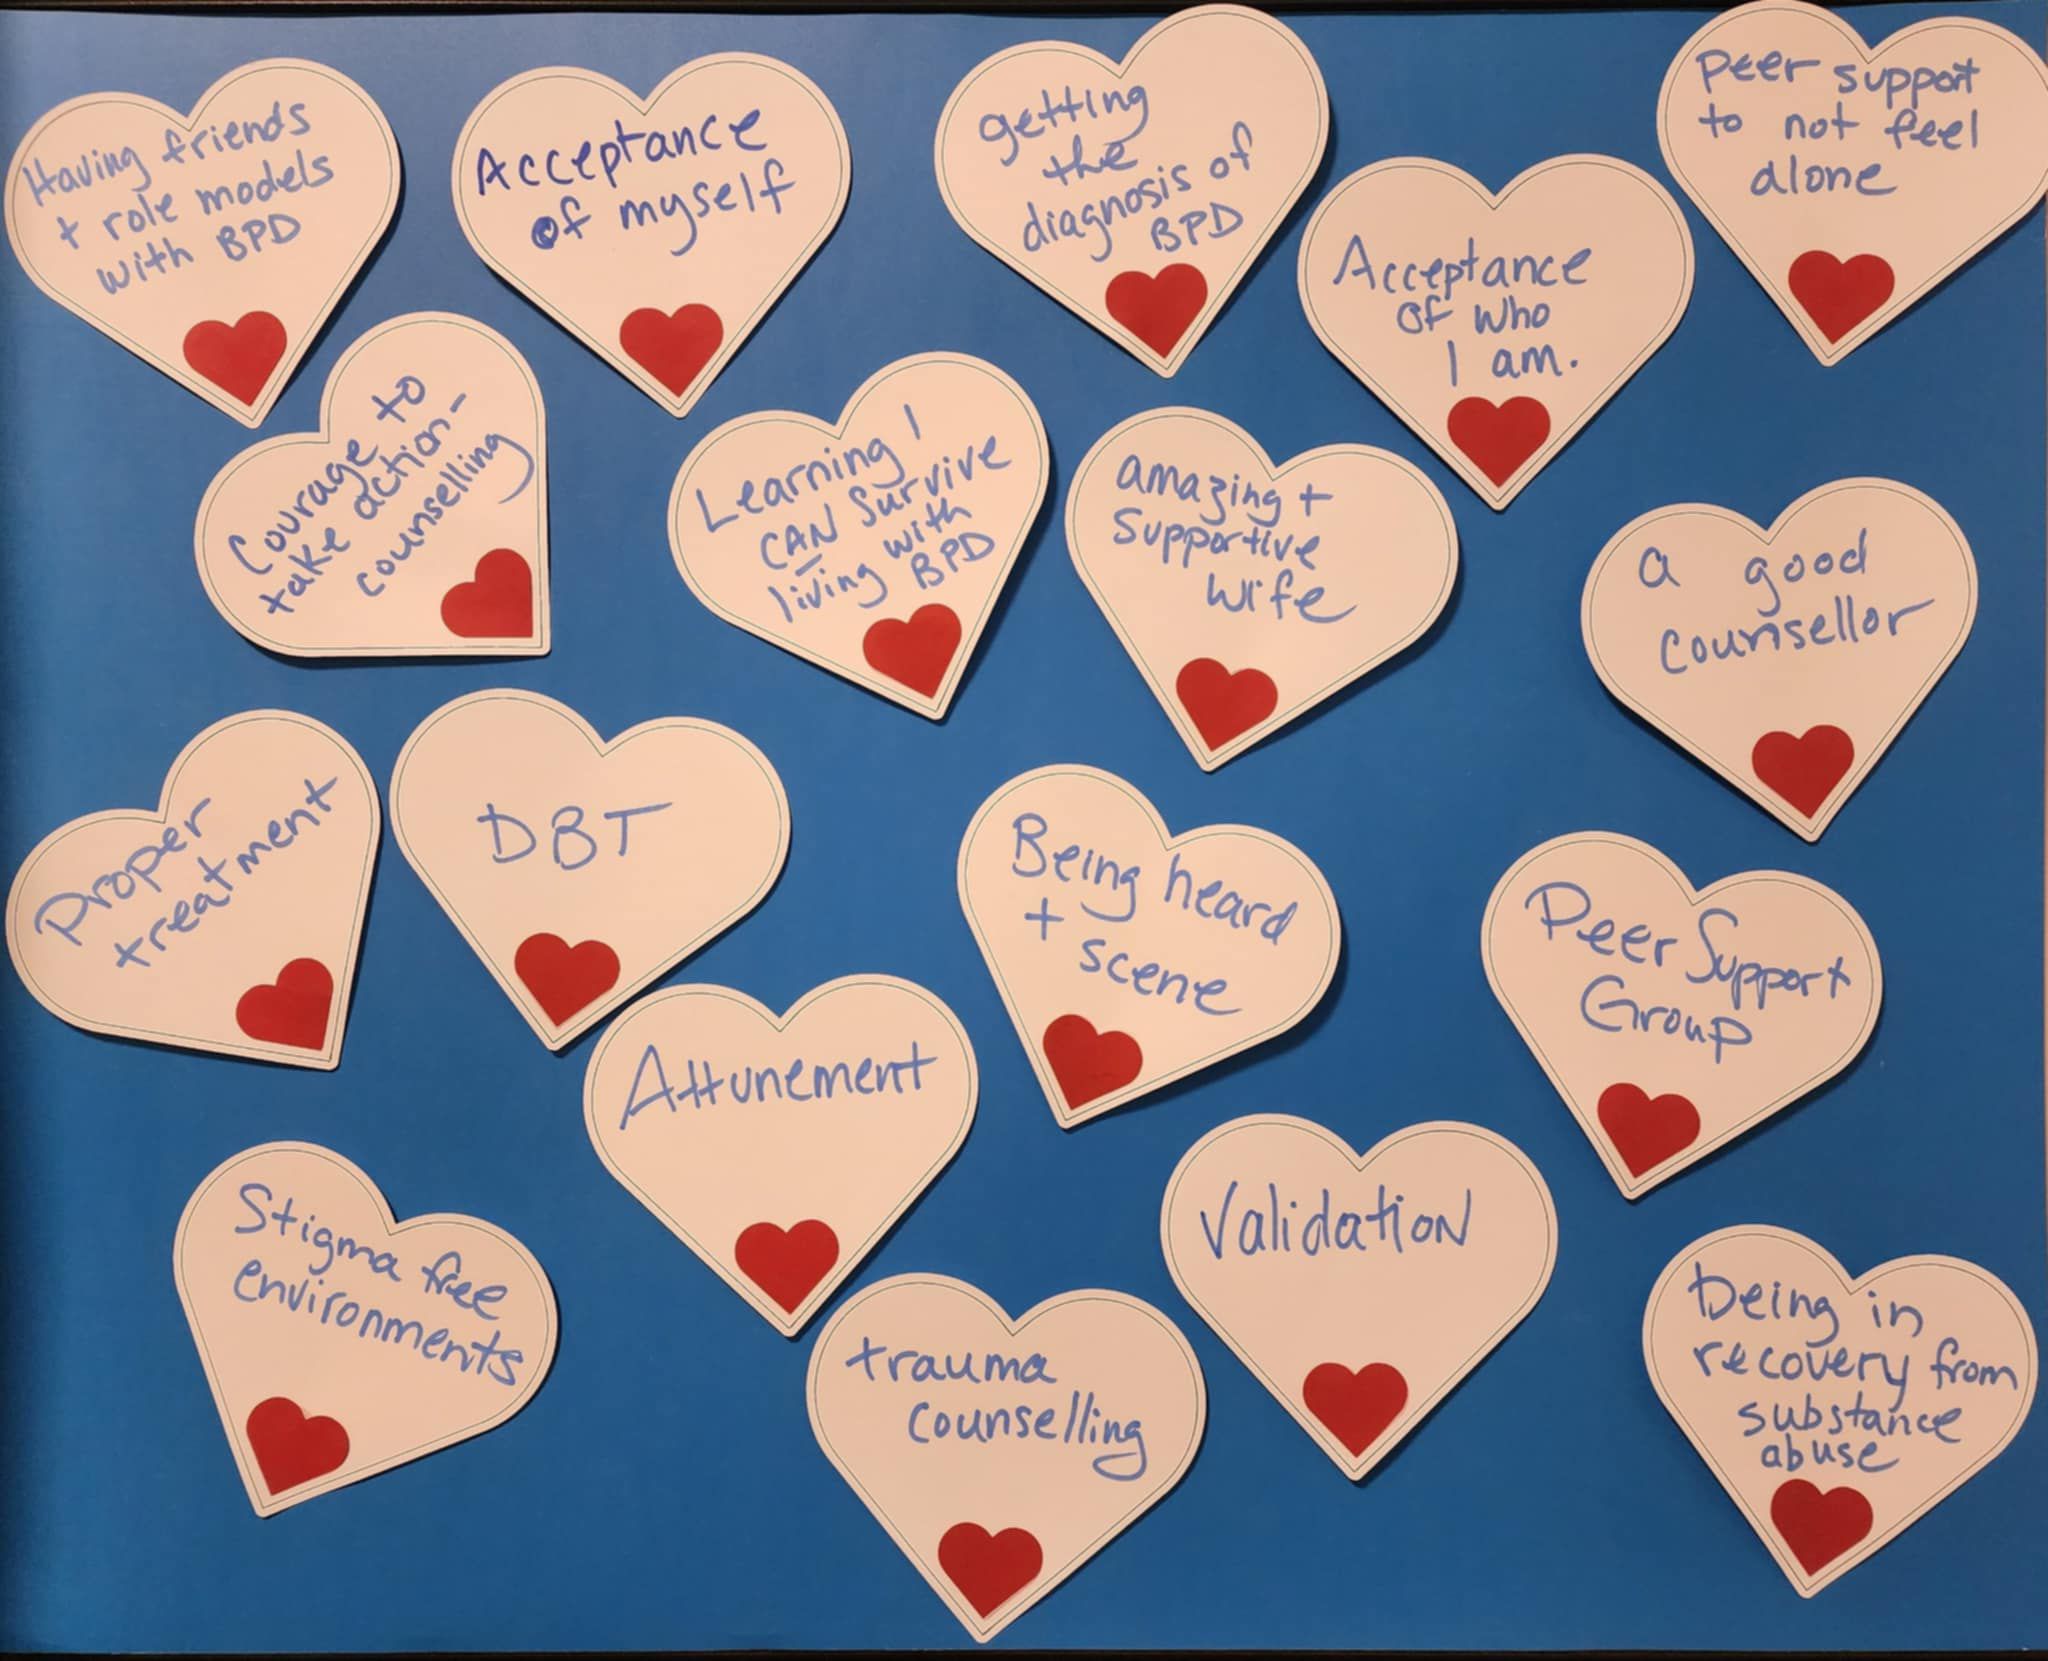 Having friends
+ role models
with BPD
Acceptance
of myself
getting
the
diagnosis of
BPD
Peer support
to not feel
alone
Acceptance
of who
I am.
Courage to
take action-
counselling
Learning I
CAN Survive
living with
BPD
amazing +
Supportive
wife
a good
counsellor
Proper
treatment
DBT
Being heard
+ scene
Peer Support
Group
Attunement
Stigma free
environments
Validation
trauma
counselling
being in
recovery from
substance
abuse